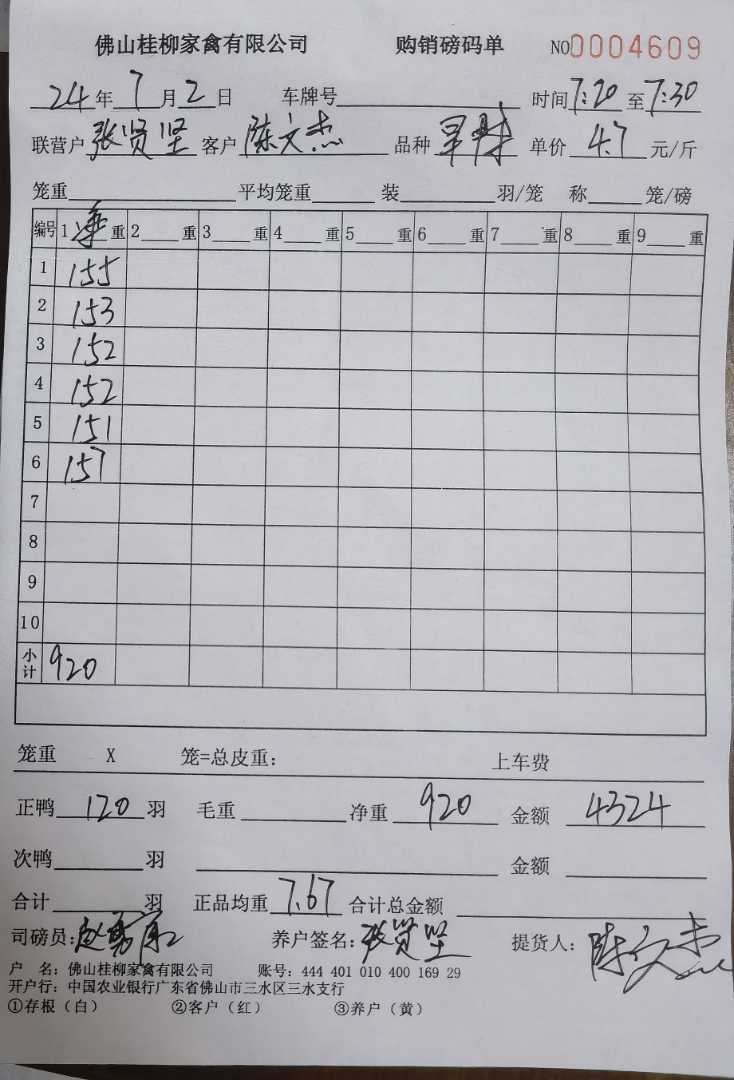 佛山桂柳家禽有限公司 购销磅码单 NO0004609
24年7月2日 车牌号 时间7:20至7:30
联营户 张贤坚 客户 陈文杰 品种 单价 4.7 元/斤
笼重 平均笼重 装 羽/笼 称 笼/磅
编号 1 净 重 2 重 3 重 4 重 5 重 6 重 7 重 8 重 9 重
1 155
2 153
3 152
4 152
5 151
6 157
7
8
9
10
小计 920
笼重 X 笼=总皮重: 上车费
正鸭 120 羽 毛重 净重 920 金额 4324
次鸭 羽 金额
合计 羽 正品均重 7.67 合计总金额
司磅员: 养户签名: 张贤坚 提货人: 陈文杰
户 名: 佛山桂柳家禽有限公司 账号: 444 401 010 400 169 29
开户行: 中国农业银行广东省佛山市三水区三水支行
①存根（白） ②客户（红） ③养户（黄）